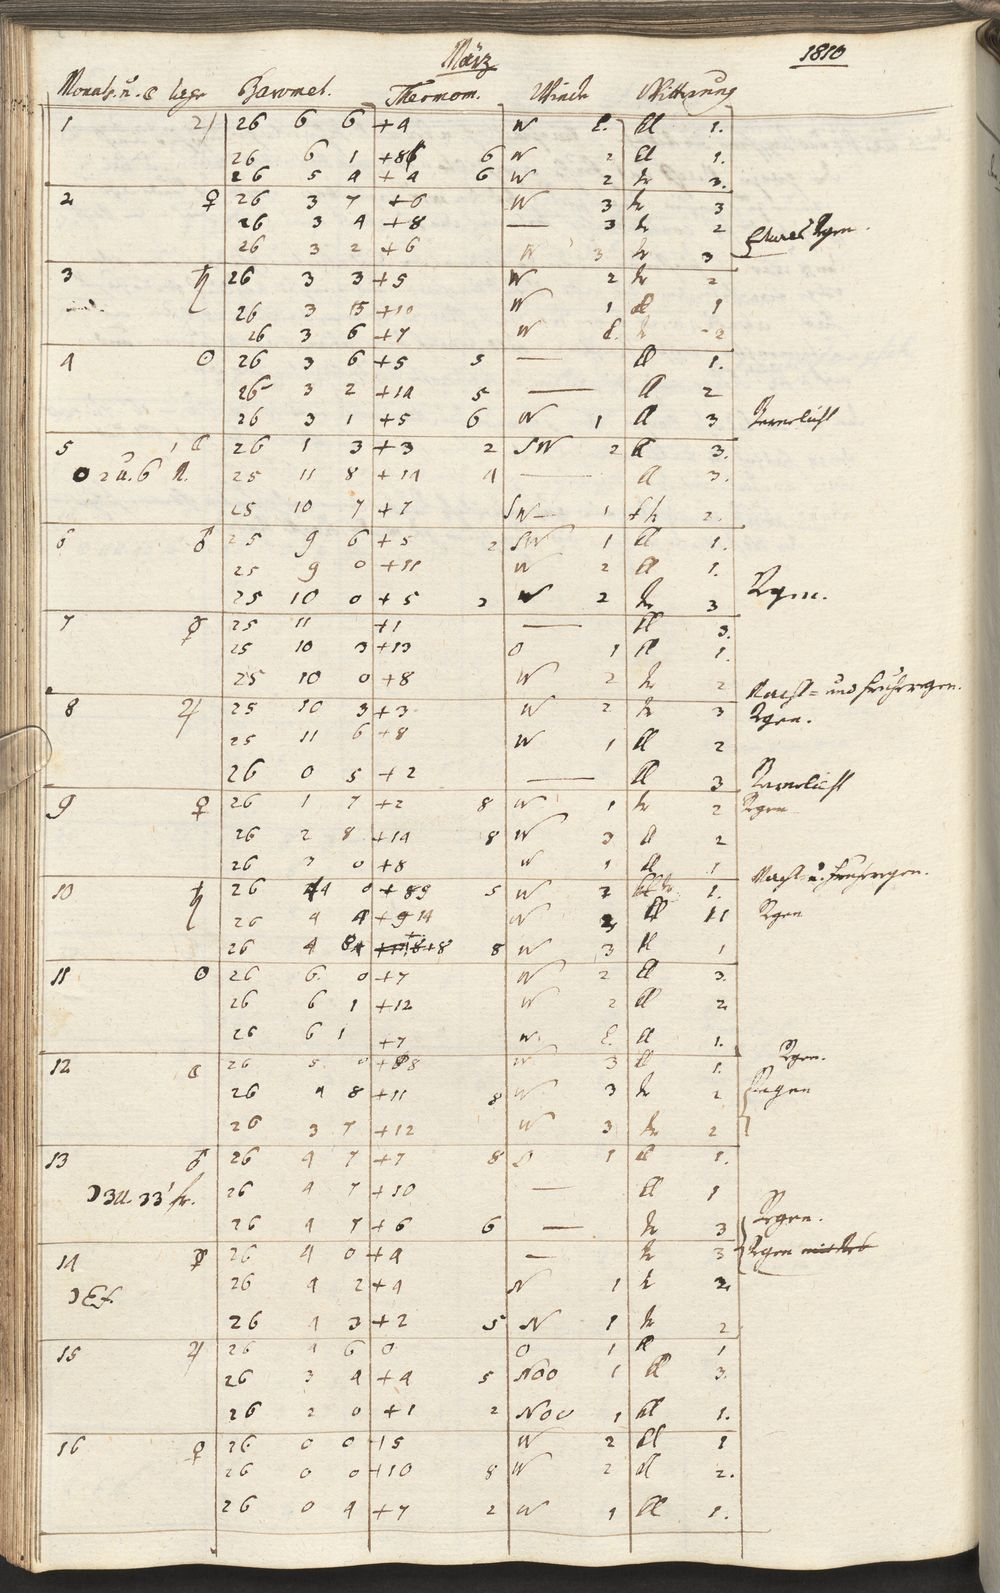 März 1810
Monats. u. ☾ Baromet. Thermom. Winde Witterung
1 ♃ 26 6 6 +4 W 2. kl 1.
26 6 1 +8 6 W 2 kl 1.
26 5 4 +4 6 W 2 tr 3.
2 ♀ 26 3 7 +6 W 3 tr 3
26 3 4 +8 — 3 tr 2
26 3 2 +6 W 3 tr 3 Regen.
3 ♄ 26 3 3 +5 W 2 tr 2
26 3 +10 W 1 kl 1
26 3 6 +7 W 2. tr 2
4 ☉ 26 3 6 +5 5 — kl 1.
26 3 2 +14 5 — kl 2
26 3 1 +5 6 W 1 kl 3
5 ☾ 26 1 3 +3 2 SW 2 kl 3.
2 U. 6 25 11 8 +14 4 — kl 3.
25 10 7 +7 SW 1 2.
6 ♂ 25 9 6 +5 2 SW 1 kl 1.
25 9 0 +11 W 2 kl 1.
25 10 0 +5 2 W 2 tr 3 Regen.
7 ☿ 25 11 +1 — kl 3.
25 10 3 +13 O 1 kl 1.
25 10 0 +8 W 2 tr 2 Nacht= und Frühregen.
8 ♃ 25 10 3 +3 W 2 tr 3 Regen.
25 11 6 +8 W 1 kl 2
26 0 5 +2 — kl 3
9 ♀ 26 1 7 +2 8 W 1 tr 2 Regen
26 2 8 +14 8 W 3 kl 2
26 3 0 +8 W 1 kl 1 Nacht= u. Frühregen.
10 ♄ 26 4 0 +89 5 W 2 1. Regen
26 4 4 +9 14 W 2 kl 11
26 4 +8 8 W 3 kl 1
11 ☉ 26 6 0 +7 W 2 kl 3.
26 6 1 +12 W 2 kl 2
26 6 1 +7 W. 2. kl 1.
12 ☾ 26 5 0 +8 W 3 kl 1. Regen.
26 4 8 +11 8 W 3 tr 2 Regen
26 3 7 +12 W 3 tr 2
13 ♂ 26 4 7 +7 8 O 1 kl 1.
☽ 3 U. 33' fr. 26 4 7 +10 — kl 1
26 4 7 +6 6 — tr 3 Regen.
14 ☿ 26 4 0 +4 — tr 3 Regen
26 4 2 +4 N 1 tr 2
26 4 3 +2 5 N 1 tr 2
15 ♃ 26 4 6 0 O 1 kl 1
26 3 4 +4 5 NOO 1 kl 3.
26 2 0 +1 2 NOO 1 kl 1.
16 ♀ 26 0 0 +5 W 2 kl 1
26 0 0 +10 8 W 2 kl 2.
26 0 4 +7 2 W 1 kl 1.